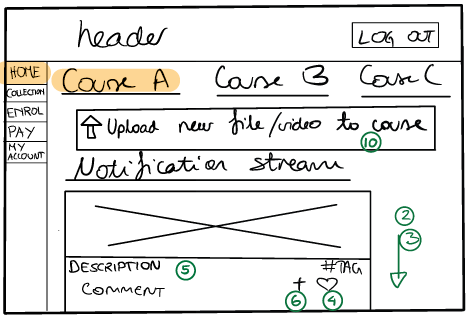 header
LOG OUT
HOME
COLLECTION
ENROL
PAY
MY
ACCOUNT
Course A Course B Course C
Upload new file/video to course
10
Notification stream
2
3
DESCRIPTION 5 #TAG
COMMENT
6 4